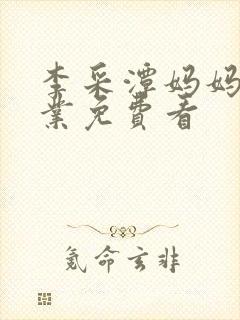 李采潭妈妈
业免费看
氪命玄非